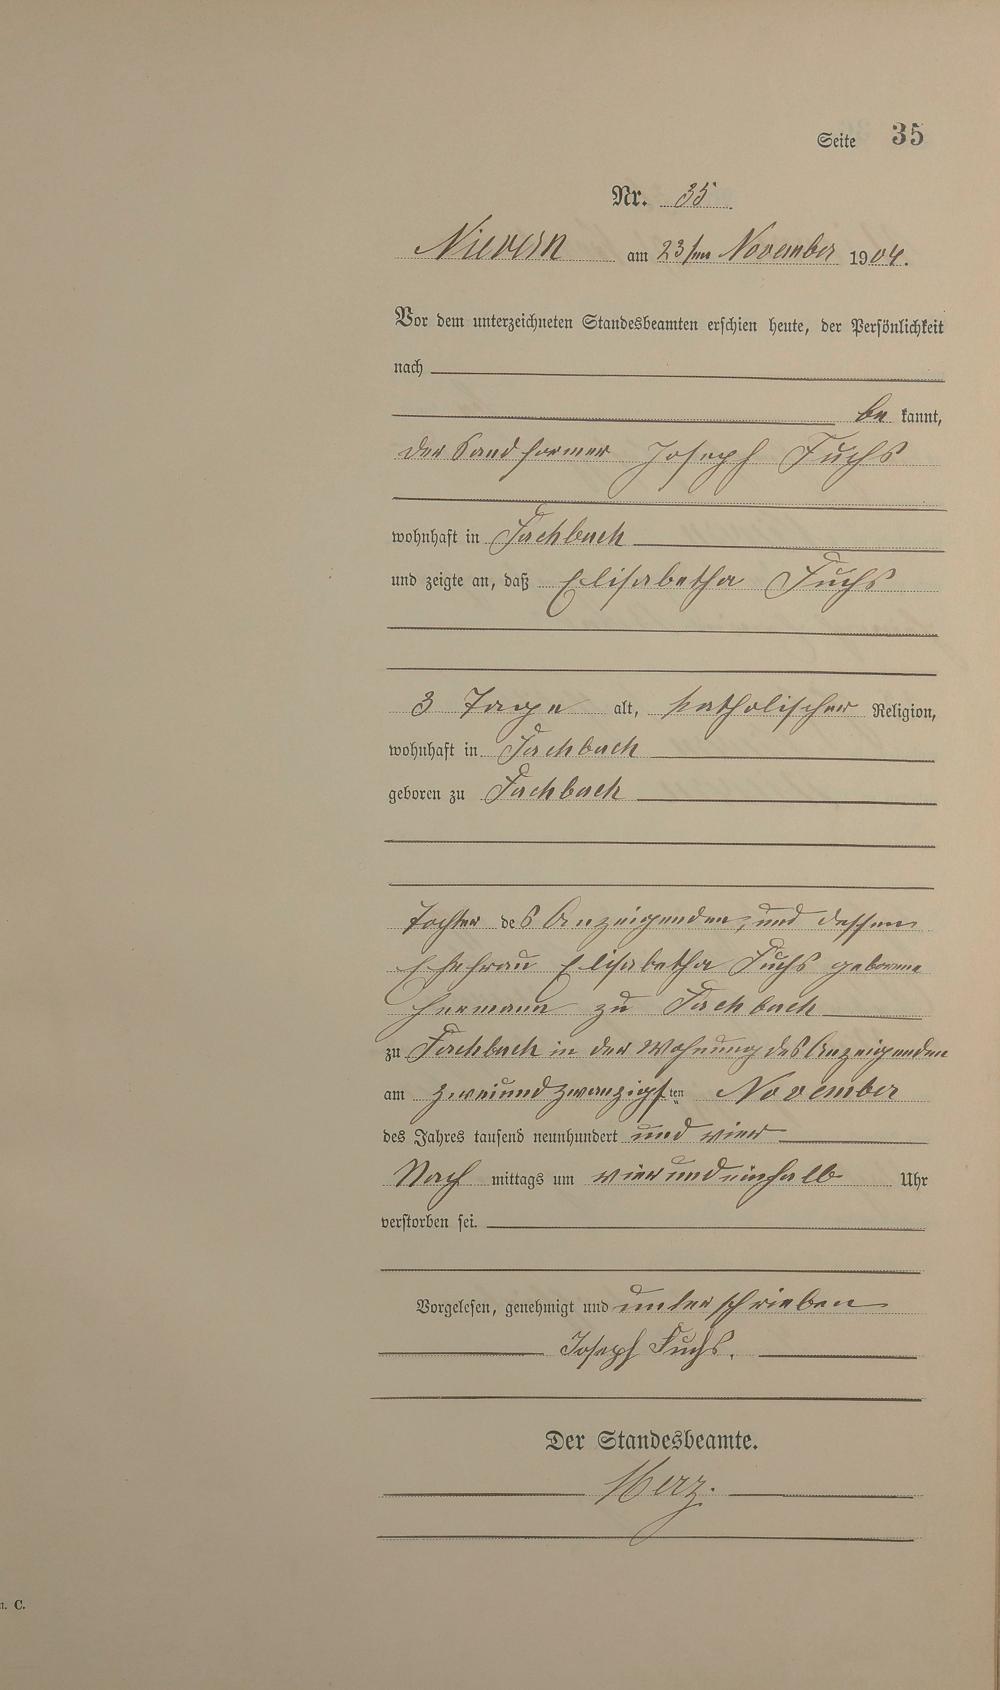 Seite 35
Nr. 35.
Nievern am 23ten November 1904.
Vor dem unterzeichneten Standesbeamten erschien heute, der Persönlichkeit
nach
be kannt,
der Sandformer Joseph Fuchs
wohnhaft in Fachbach
und zeigte an, daß Elisabetha Fuchs
3 Tage alt, katholischer Religion,
wohnhaft in Fachbach
geboren zu Fachbach
Tochter des Anzeigenden, und dessen
Ehefrau Elisabetha Fuchs geborene
Hermann zu Fachbach
zu Fachbach in der Wohnung des Anzeigenden
am zweiundzwanzigsten November
des Jahres tausend neunhundert und vier
Nach mittags um vierundeinhalb Uhr
verstorben sei.
Vorgelesen, genehmigt und unterschrieben
Joseph Fuchs.
Der Standesbeamte.
Merz.
C.